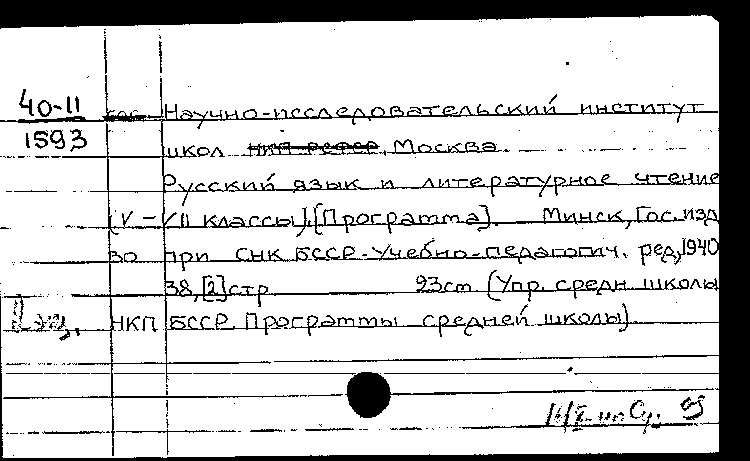 40-11 Научно-исследовательский институт
1593 школ НКП РСФСР, Москва.
Русский язык и литературное чтение
(V – VII классы). [Программа]. Минск, Гос. изд
во при СНК БССР - Учебно-педагогич. ред, 1940
38, [2] стр 23см (Упр. средн школы
НКП БССР. Программы средней школы).